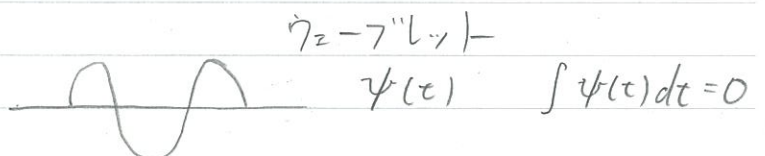 ウェーブレット
ψ(t) ∫ψ(t)dt=0